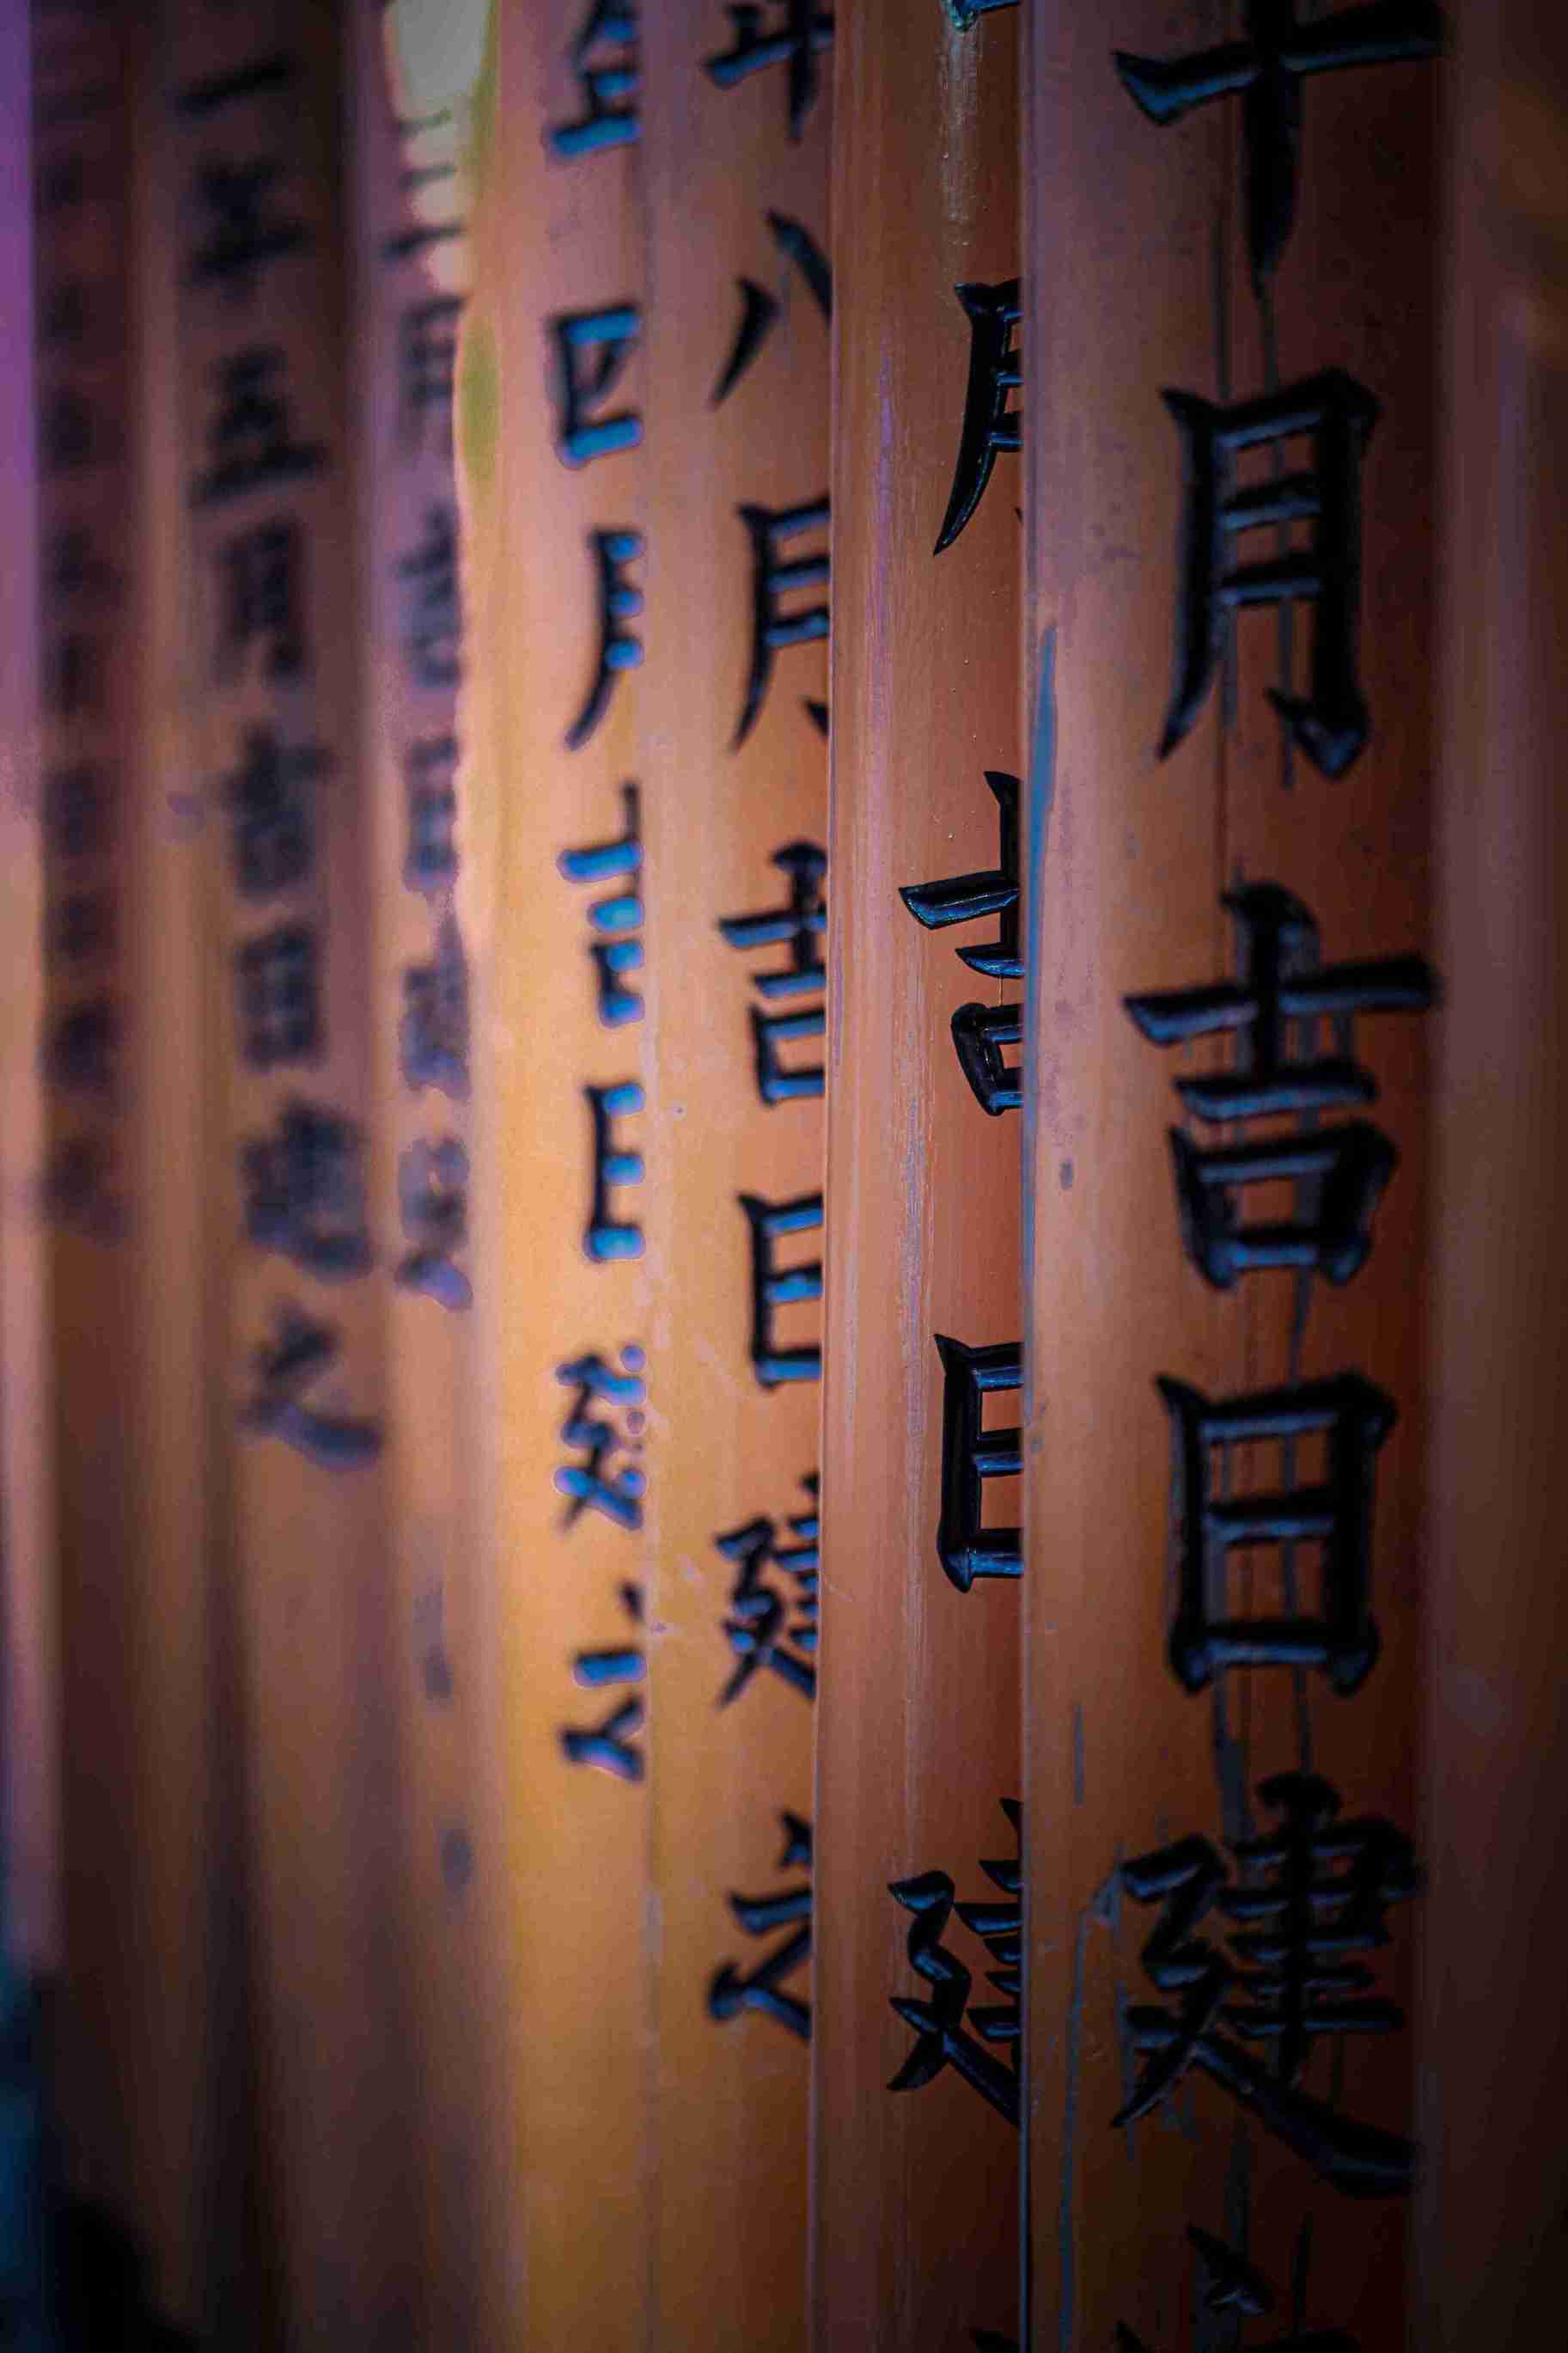 十月吉日建
月吉日建
年八月吉日建之
年四月吉日建之
月吉日建之
年五月吉日建之